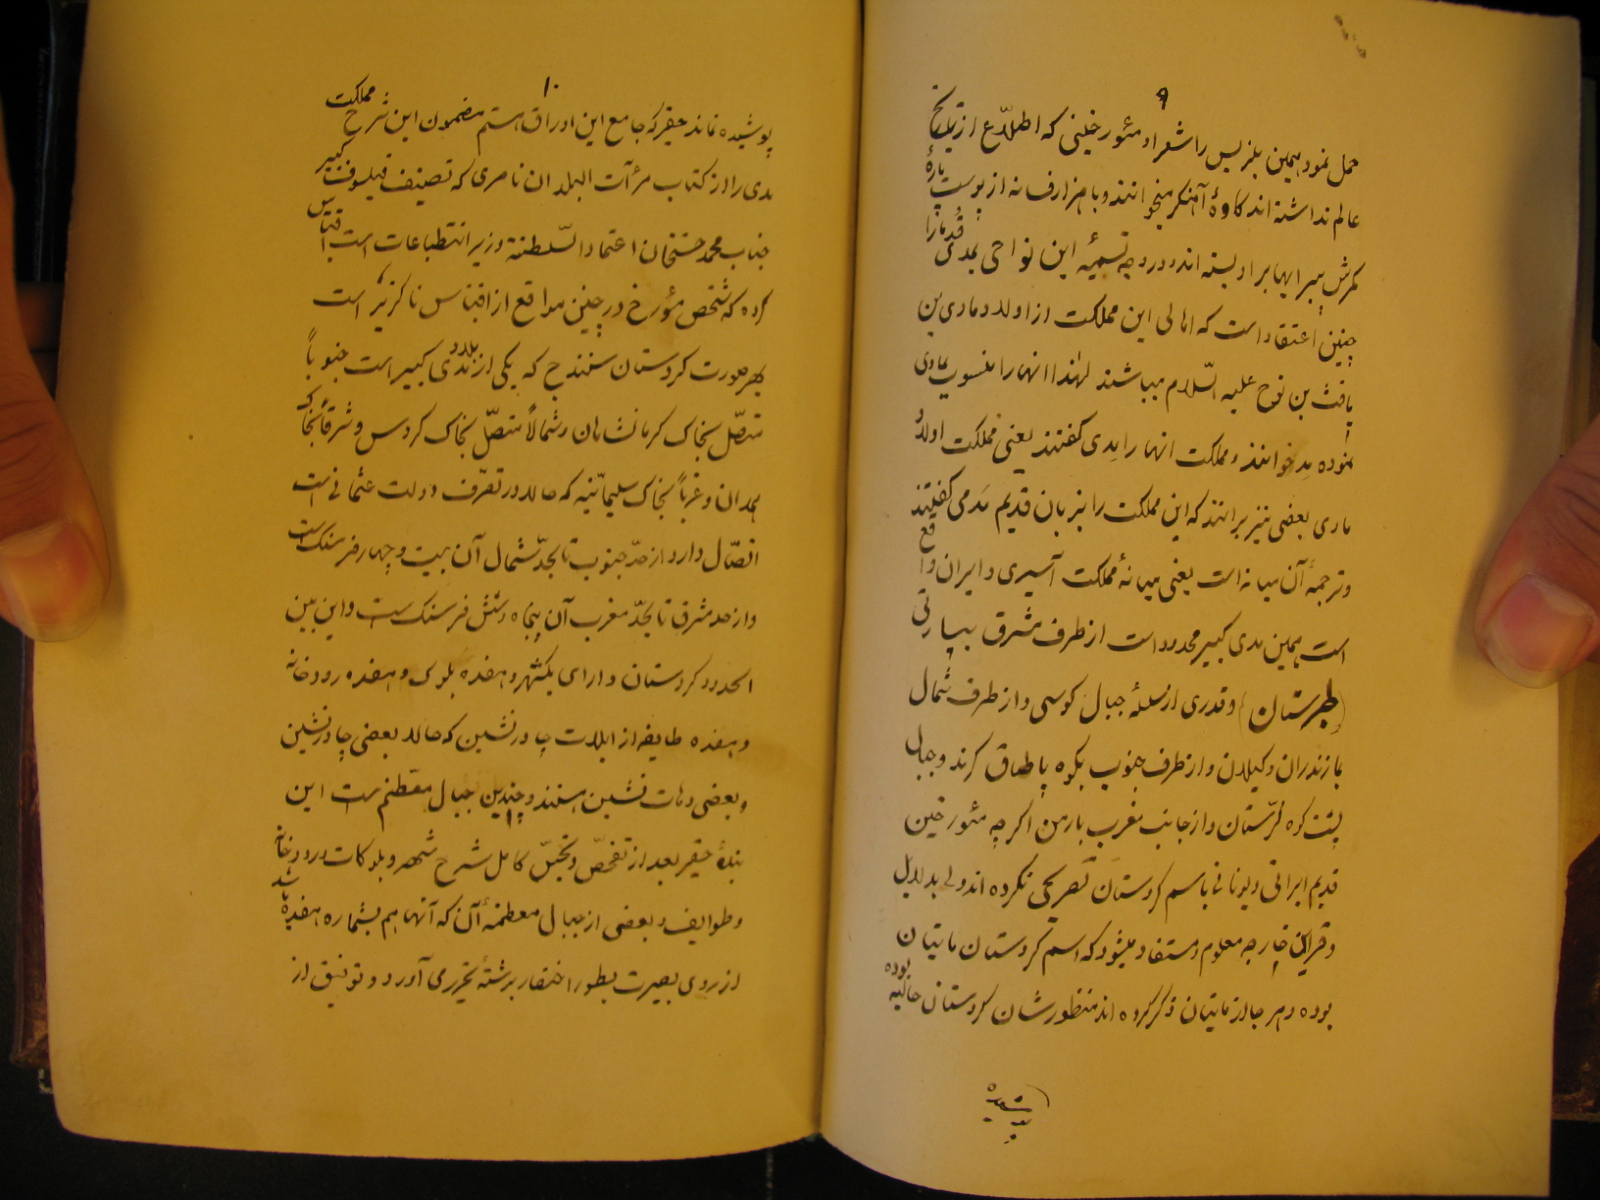 ۹
حمل نمود همین بلزیس را شعرا و مئورخینی که اطلّاع از تاریخ
عالم نداشته اند کاوۀ آهنگر میخوانند و با هزار افسانه از پوست پارۀ
کمرش بیرایها بر او بسته اند و در وجه تسمیۀ این نواحی بمدی قُدما را
چنین اعتقاد است که اهالی این مملکت از اولاد مادی بن
یافث بن نوح علیه السّلام میباشند لهٰذا انها را منسوب بمادی
نموده مِد خوانند و مملکت انها را مِدی گفتند یعنی مملکت اولاد
مادی بعضی نیز برانند که این مملکت را بزبان قدیم مَدمی گفتند
و ترجمۀ آن میانه است یعنی میانۀ مملکت آسیری و ایران واقع
است همین مدی کبیر محدود است از طرف مشرق بپارتی
(طبرستان) و قدری از سلسلۀ جبال کوسی و از طرف شمال
بمازندران و گیلان و از طرف جنوب بکوه پاطاق کرند و جبال
پشت کوه لُرّستان و از جانب مغرب بارمن اگرچه مئورخین
قدیم ایرانی و یونانی باسم کردستان تصریحی نکرده اند ولی بدلایل
و قراین خارجه معلوم و مستفاد میشود که اسم کردستان ماتیان
بوده و هر جا از ماتیان ذکر کرده اند منظورشان کردستان حالیه بوده
پوشیده
۱۰
پوشیده نماند حقیر که جامع این اوراق هستم مضمون این شرح مملکت
مدی را از کتاب مرآت البلدان ناصری که تصنیف فیلسوف کبیر
جناب محمد حسنخان اعتماد السّلطنة وزیر انتطباعات است اقتباس
کرده که شخص مؤرخ در چنین مواقع از اقتباس ناگزیر است
بهر صورت کردستان سنندج که یکی از بلاد مدی کبیر است جنوباً
متصّل بخاک کرمانشاهان و شمالاً متصّل بخاک کروس و شرقاً بخاک
همدان و غرباً بخاک سلیمانیه که حالا در تصرّف دولت عثمانی است
اتصّال دارد از حدّ جنوب تا بحدّ شمال آن بیست و چهار فرسنگ است
و از حد مشرق تا بحدّ مغرب آن پنجاه و شش فرسنگ است و این بین
الحدود کردستان دارای یکشهر و هفده بلوک و هفده رودخانه
و هفده طایفه از ایلات چادرنشین که حالا بعضی چادرنشین
و بعضی دهات نشین هستند و چندین جبال معظّم است این
بندۀ حقیر بعد از تفحّص و تجسّس کامل شرح شهر و بلوکات و رودخانه
و طوایف و بعضی از جبال معظمۀ آن که آنها هم بشماره هفده شد
از روی بصیرت بطور اختصار برشتۀ تحریر می آورد و توفیق از